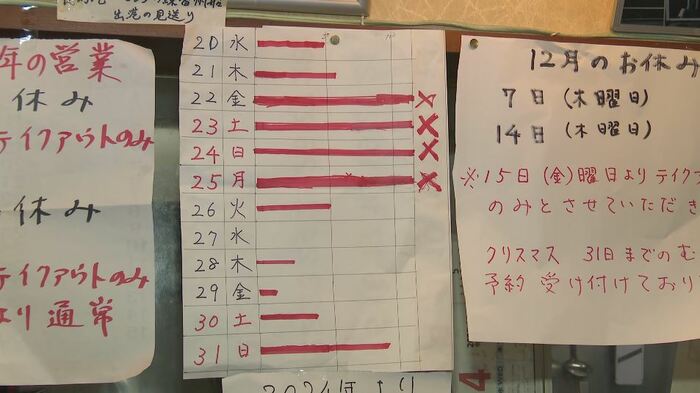 出港の見送り
年の営業
休み
テイクアウトのみ
休み
テイクアウトのみ
より通常
20 水
21 木
22 金
23 土
24 日
25 月
26 火
27 水
28 木
29 金
30 土
31 日
2024年より
12月のお休み
7日(木曜日)
14日(木曜日)
※15日(金)曜日よりテイク
のみとさせていただき
クリスマス 31日までの
予約 受け付けており